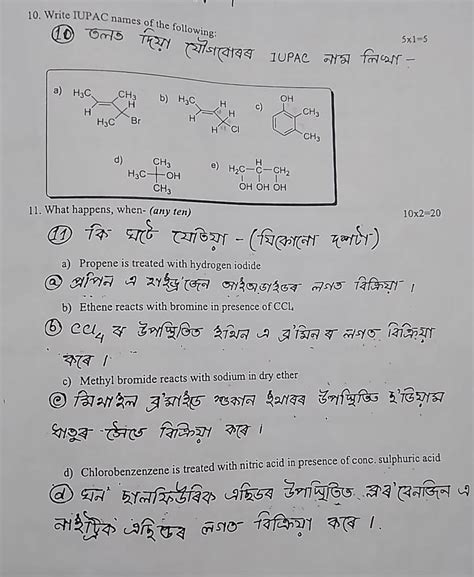 10. Write IUPAC names of the following:
5x1=5
⑩ তলত দিয়া যৌগবোৰৰ IUPAC নাম লিখা -
a) H₃C CH₃ H H H₃C Br
b) H₃C H H H H Cl
c) OH CH₃ CH₃
d) CH₃ H₃C OH CH₃
e) H H₂C-C-CH₂ OH OH OH
11. What happens, when- (any ten)
10x2=20
⑪ কি ঘটে যেতিয়া - (যিকোনো দশটা)
a) Propene is treated with hydrogen iodide
ⓐ প্ৰপিন এ হাইড্ৰ'জেন আইঅ'ডাইডৰ লগত বিক্ৰিয়া ।
b) Ethene reacts with bromine in presence of CCl₄
ⓑ CCl₄ ৰ উপস্থিতিত ইথিন এ ব্ৰ'মিন ৰ লগত বিক্ৰিয়া
কৰে ।
c) Methyl bromide reacts with sodium in dry ether
ⓒ মিথাইল ব্ৰ'মাইডে শুকান ইথাৰৰ উপস্থিতিত ছ'ডিয়াম
ধাতুৰ সৈতে বিক্ৰিয়া কৰে ।
d) Chlorobenzenzene is treated with nitric acid in presence of conc. sulphuric acid
ⓓ ঘন' ছালফিউৰিক এছিডৰ উপস্থিতিত ক্ল'ৰ'বেনজিন এ
নাইট্ৰিক এছিডৰ লগত বিক্ৰিয়া কৰে ।